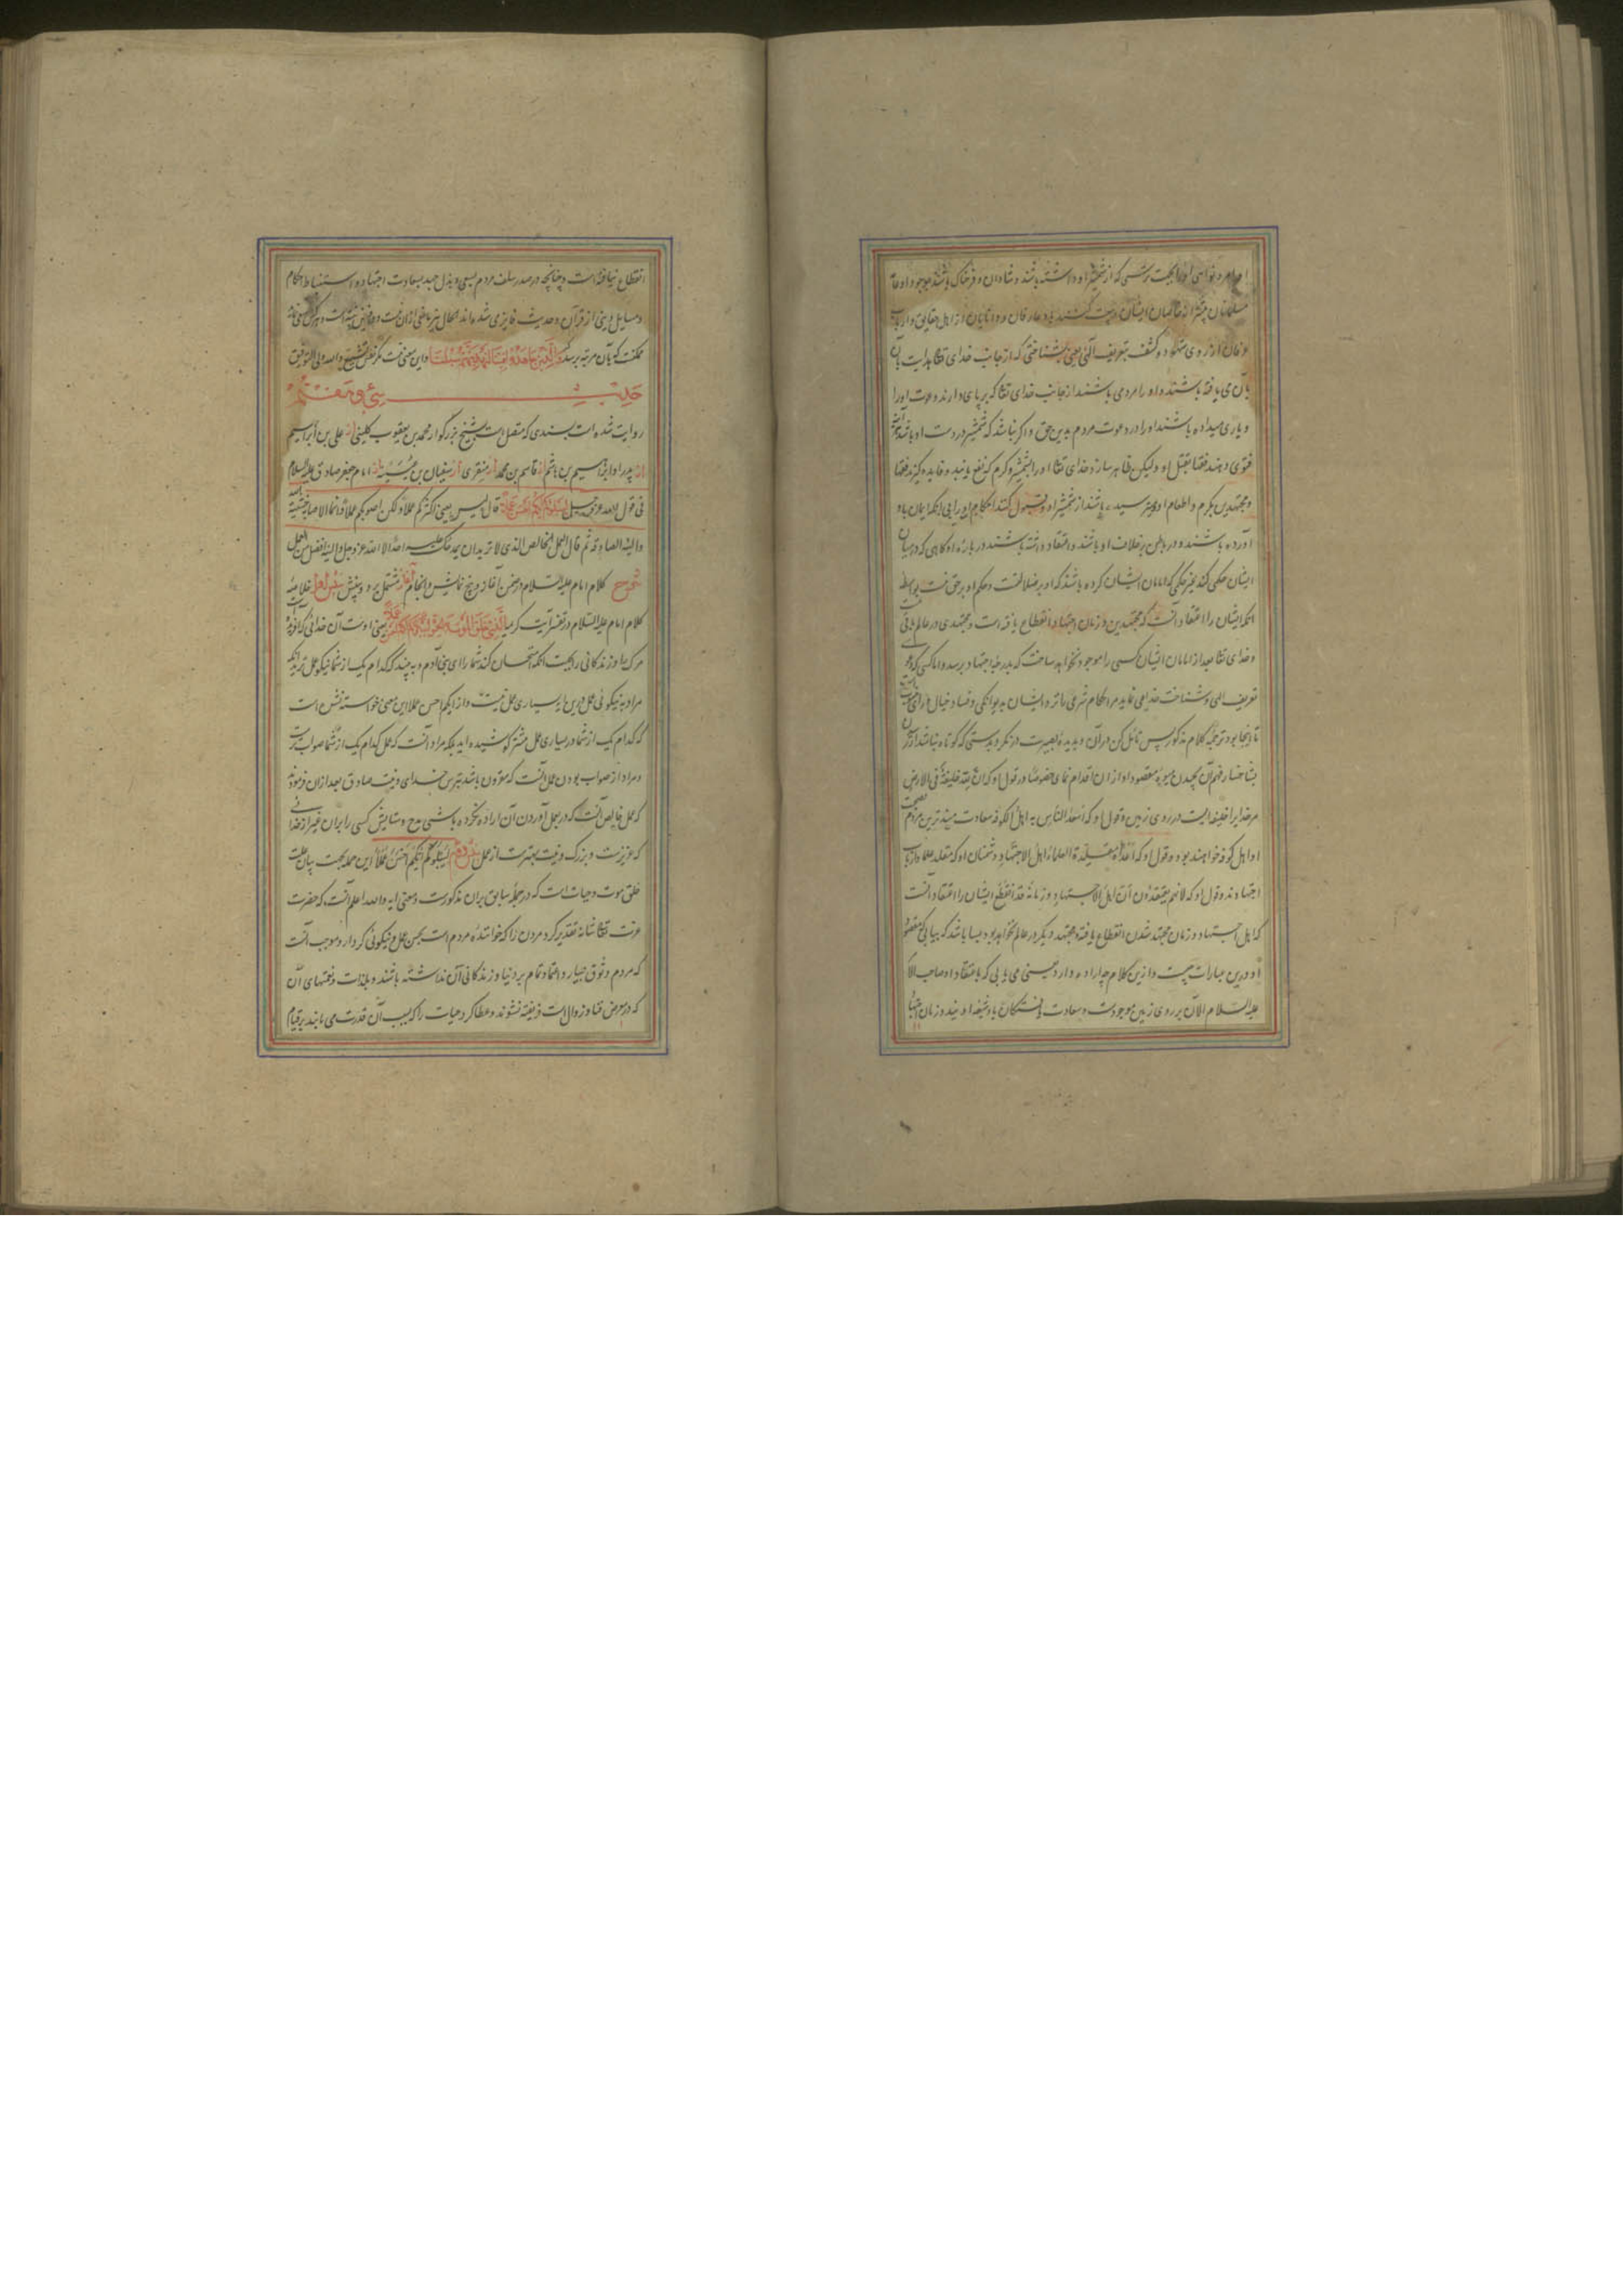 اوامر و نواهی او را بجهت ترسی که از شمشیر او داشته باشند و شادان و فرحناک باشند بوجود او عامه
مسلمانان بیشتر از خاصان ایشان و بیعت کنند با او عارفان و دانایان از اهل حقایق و ارباب
عرفان از روی شهود و کشف بتعریف الهی یعنی بشناختی که از جانب خدای تعالی بهدایت
بآن می یافته باشند و او را مردمی باشند از جانب خدای تعالی که بر پای دارند دعوت او را
و یاری میداده باشند او را در دعوت مردم بدین حق و اگر نباشد که شمشیر در دست او باشد
فتوی دهند فقها بقتل او و لیکن ظاهر سازد خدای تعالی او را بشمشیر و کرم که نفع یابند و فایده گیرند فقها
و مجتهدین بکرم و اطعام او و ترسیده باشند از شمشیر او و قبول کنند احکام او را بی آنکه ایمان باو
آورده باشند و در باطن بر خلاف او باشند و اعتقاد داشته باشند در باره او گاهی که در میان
ایشان حکمی کند بغیر حکمی که امامان ایشان کرده باشند که او بر ضلالتست و حکم او بر حق نیست بواسطه
آنکه ایشان را اعتقاد آنست که مجتهدین و زمان اجتهاد انقطاع یافته است و مجتهدی در عالم باقی نیست
و خدای تعالی بعد از امامان ایشان کسی را موجود نخواهد ساخت که بدرجه اجتهاد برسد و اما کسی که دعوی
تعریف الهی و شناخت خدایی نماید مر احکام شرعی را نزد ایشان بدیوانگی و فساد خیال
تا اینجا بود ترجمه کلام مذکور پس تأمل کن در آن و بدیده بصیرت در نگر و بدستی که کوتاه نباشد
بشاخسار فهم آن پیچیدن میوه مقصود او از ان اقدام نمای خصوصا در قول او که ان لله خلیفة فی الارض
مر خدایرا خلیفه ایست در روی زمین و قول او که اسعد الناس به اهل الکوفه سعادت مندترین مردم
او اهل کوفه خواهند بود و قول او که اعداؤه مقلدة العلماء اهل الاجتهاد دشمنان او که مقلد علما و ارباب
اجتهادند و قول او که لانهم یعتقدون ان اهل الاجتهاد و زمانه قد انقطع ایشان را اعتقاد آنست
که اهل اجتهاد و زمان مجتهد شدن انقطاع یافته و مجتهد دیگر در عالم نخواهد بود
او درین عبارات چیست و ازین کلام چه اراده دارد
علیه السلام الآن بر روی زمین موجودست و سعادت
انقطاع نیافته است و چنانچه در صدر سلف مردم بسعی و بذل جهد بسعادت اجتهاد و استنباط احکام
و مسایل دینی از قرآن و حدیث فایز می شده اند
ممکنست که بآن مرتبه برسد که والذین جاهدوا فینا لنهدینهم سبلنا و این معنی نیست مگر نفس تشیع والله ولی التوفیق
حدیث سی و هفتم
روایت شده است بسندی که متصل است بشیخ بزرگوار محمد بن یعقوب کلینی از علی بن ابراهیم
از پدر او ابراهیم بن هاشم از قاسم بن محمد از منقری از سفیان بن عیینه از امام جعفر صادق علیه السلام
فی قول الله عز و جل لیبلوکم ایکم احسن عملا قال لیس یعنی اکثرکم عملا و لکن اصوبکم عملا و انما الاصابة خشیة الله
و النیة الصادقة ثم قال العمل الخالص الذی لا ترید ان یحمدک علیه احد الا الله عز و جل و النیة افضل من العمل
شرح کلام امام علیه السلام در ضمن آغاز و پنج نمایش و انجام آغاز مشتمل بر دو بینش بینش اول خلاصه
کلام امام علیه السلام در تفسیر آیت کریمه الذی خلق الموت و الحیوة لیبلوکم ایکم احسن عملا یعنی اوست آن خدائی که
مرک را و زندکانی را بجهت آنکه امتحان کند شما را ای بنی آدم و به بیند که کدام یک از شما نیکو عمل ترید
مراد به نیکوئی عمل درین مقام بسیاری عمل نیست و از ایکم احسن عملا این معنی خواسته نشده است
که کدام یک از شما در بسیاری عمل بیشتر کوشیده اید بلکه مراد آنست که عمل کدام یک از شما صواب ترست
و مراد از صواب بودن عمل آنست که مقرون باشد بترس خدای و نیت صادق بعد از ان فرمود
که عمل خالص آنست که در بعمل آوردن آن اراده نکرده باشی مدح و ستایش کسی را بران غیر از خدائی
که عزیزست و بزرک و نیت بهترست از عمل بینش دوم لیبلوکم ایکم احسن عملا این جمله بجهت بیان علت
خلق موت و حیات است که در جمله سابق بران مذکورست و معنی آیه والله اعلم آنست که حضرت
عزت تعالی شانه تقدیر کرد مردن را که خوانندهٔ مردم است بحسن عمل و نیکوئی کردار و موجب آنست
که مردم وثوق بسیار و اعتماد تمام بر دنیا و زندکانی آن نداشته باشند و بلذات و نعمتهای آن
که در معرض فنا و زوال است فریفته نشوند و عطا کرد حیات را که بسبب آن قدرت می یابند بر قیام